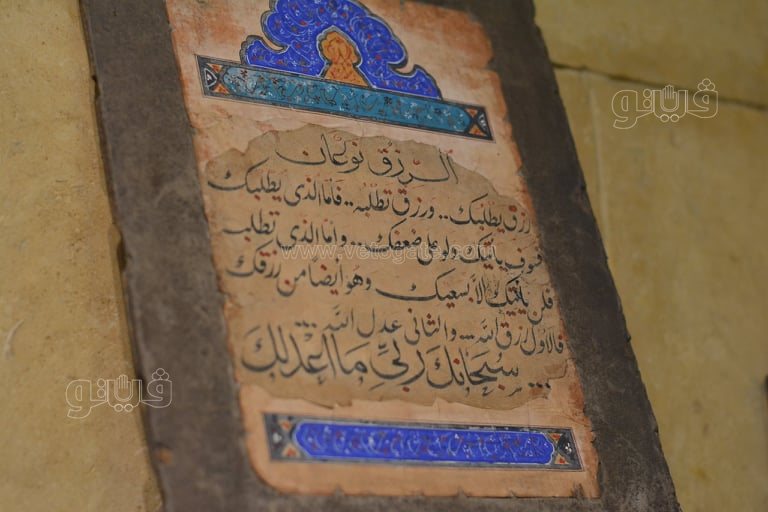 الرزق نوعان
رزق يطلبك.. ورزق تطلبه.. فاما الذى يطلبك
فسوف يأتيك ولو على ضعفك... واما الذى تطلبه
فلن يأتيك الا بسعيك وهو أيضا من رزقك
فالاول رزق الله... والثانى عدل الله...
... سبحانك ربى ما اعدلك
www.vetogate.com
ڤيتو
ڤيتو